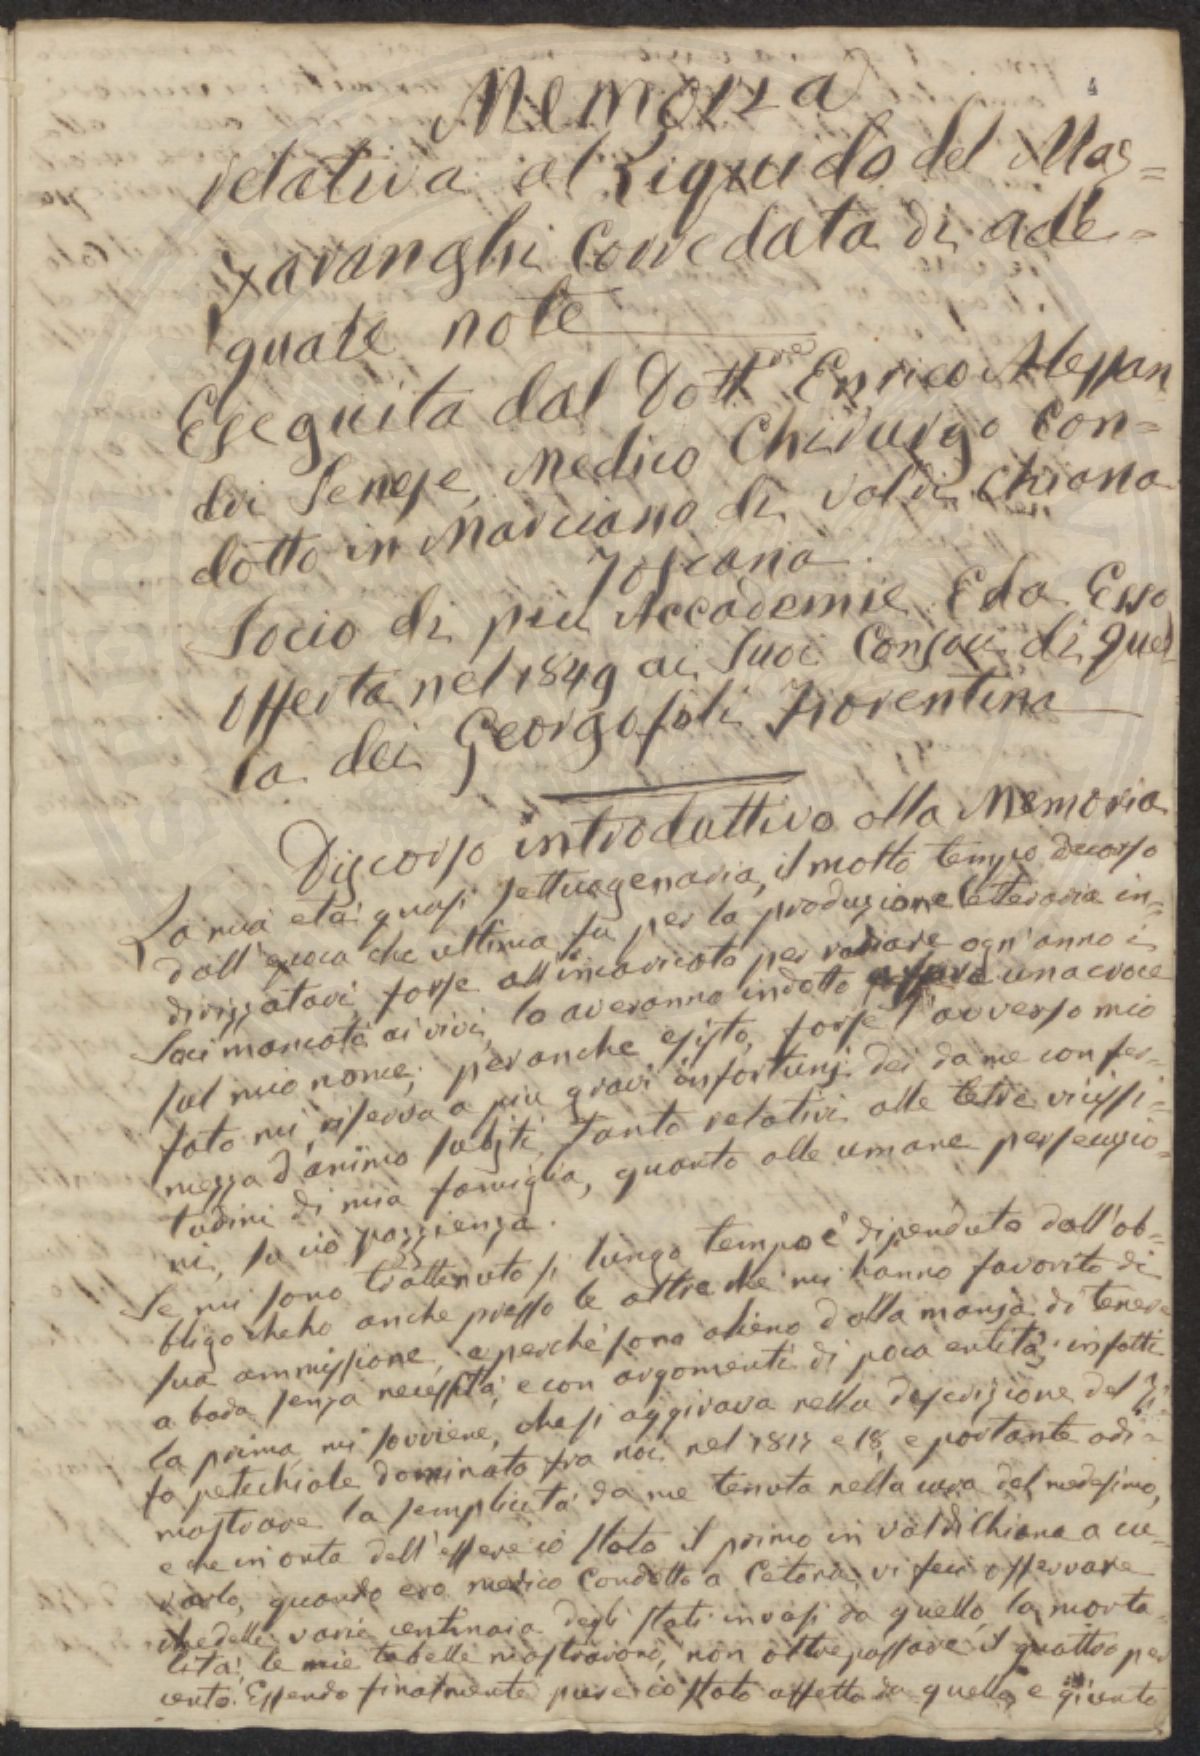 4
Memoria
relativa al Liquido del Maz=
zaranghi Corredata di ade=
guate note
Eseguita dal Dott.re Enrico Alessan
dri Senese, Medico Chirurgo Con=
dotto in Marciano di Val di Chiana
Toscana.
Socio di più Accademie. E da Esso
offerta nel 1849 ai Suoi Consoci di quel
la dei Georgofoli Fiorentina
Discorso introduttivo alla Memoria
La mia età quasi settuagenaria, il molto tempo decorso
dall'epoca che ultima fu per la produzione letteraria in=
dirizzatavi forse all'incaricato per radiare ogn'anno i
Soci mancati ai vivi, lo averanno indotto a fare una croce
sul mio nome; per anche esisto, forse l'avverso mio
fato mi riserva a più gravi infortunj dei da me con fer=
mezza d'animo subiti, tanto relativi alle tetre vicissi=
tudini di mia famiglia, quanto alle umane persecuzio=
ni, su ciò pazzienza.
Se mi sono trattenuto sì lungo tempo è dipenduto dall'ob=
bligo che ho anche presso le altre che mi hanno favorito di
sua ammissione, e perchè sono alieno dalla mania di tenere
a bada senza necessità, e con argomenti di poca entità; infatti
la prima, mi sovviene, che si aggirava nella descrizione del Ti=
fo petechiale dominato fra noi nel 1817 e 18, e portante a di=
mostrare la semplicità da me tenuta nella cura del medesimo,
e che in onta dell'essere io stato il primo in Val di Chiana a cu=
rarlo, quando ero medico Condotto a Cetona, vi feci osservare
che delle varie centinaia degli stati invasi da quello, la morta=
lità le mie tabelle mostrarono, non oltrepassare il quattro per
cento. Essendo finalmente pure io stato affetto da quello, e giunto